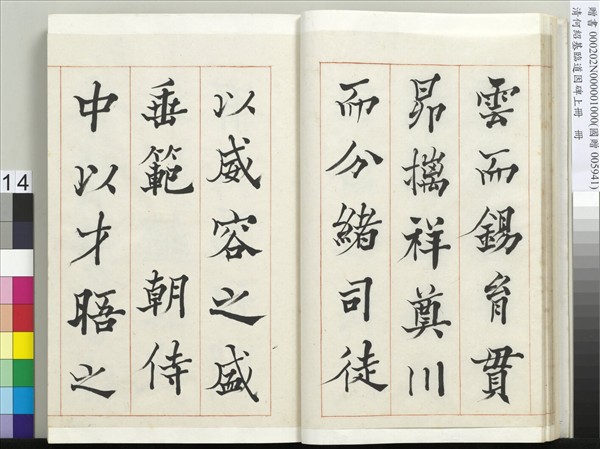 雲而錫胄貫
昴摛祥奠川
而分緒司徒
以威容之盛
垂範 朝侍
中以才晤之
贈書 000202N000001000(國贈 005941)
清何紹基臨道因碑上冊 冊
14